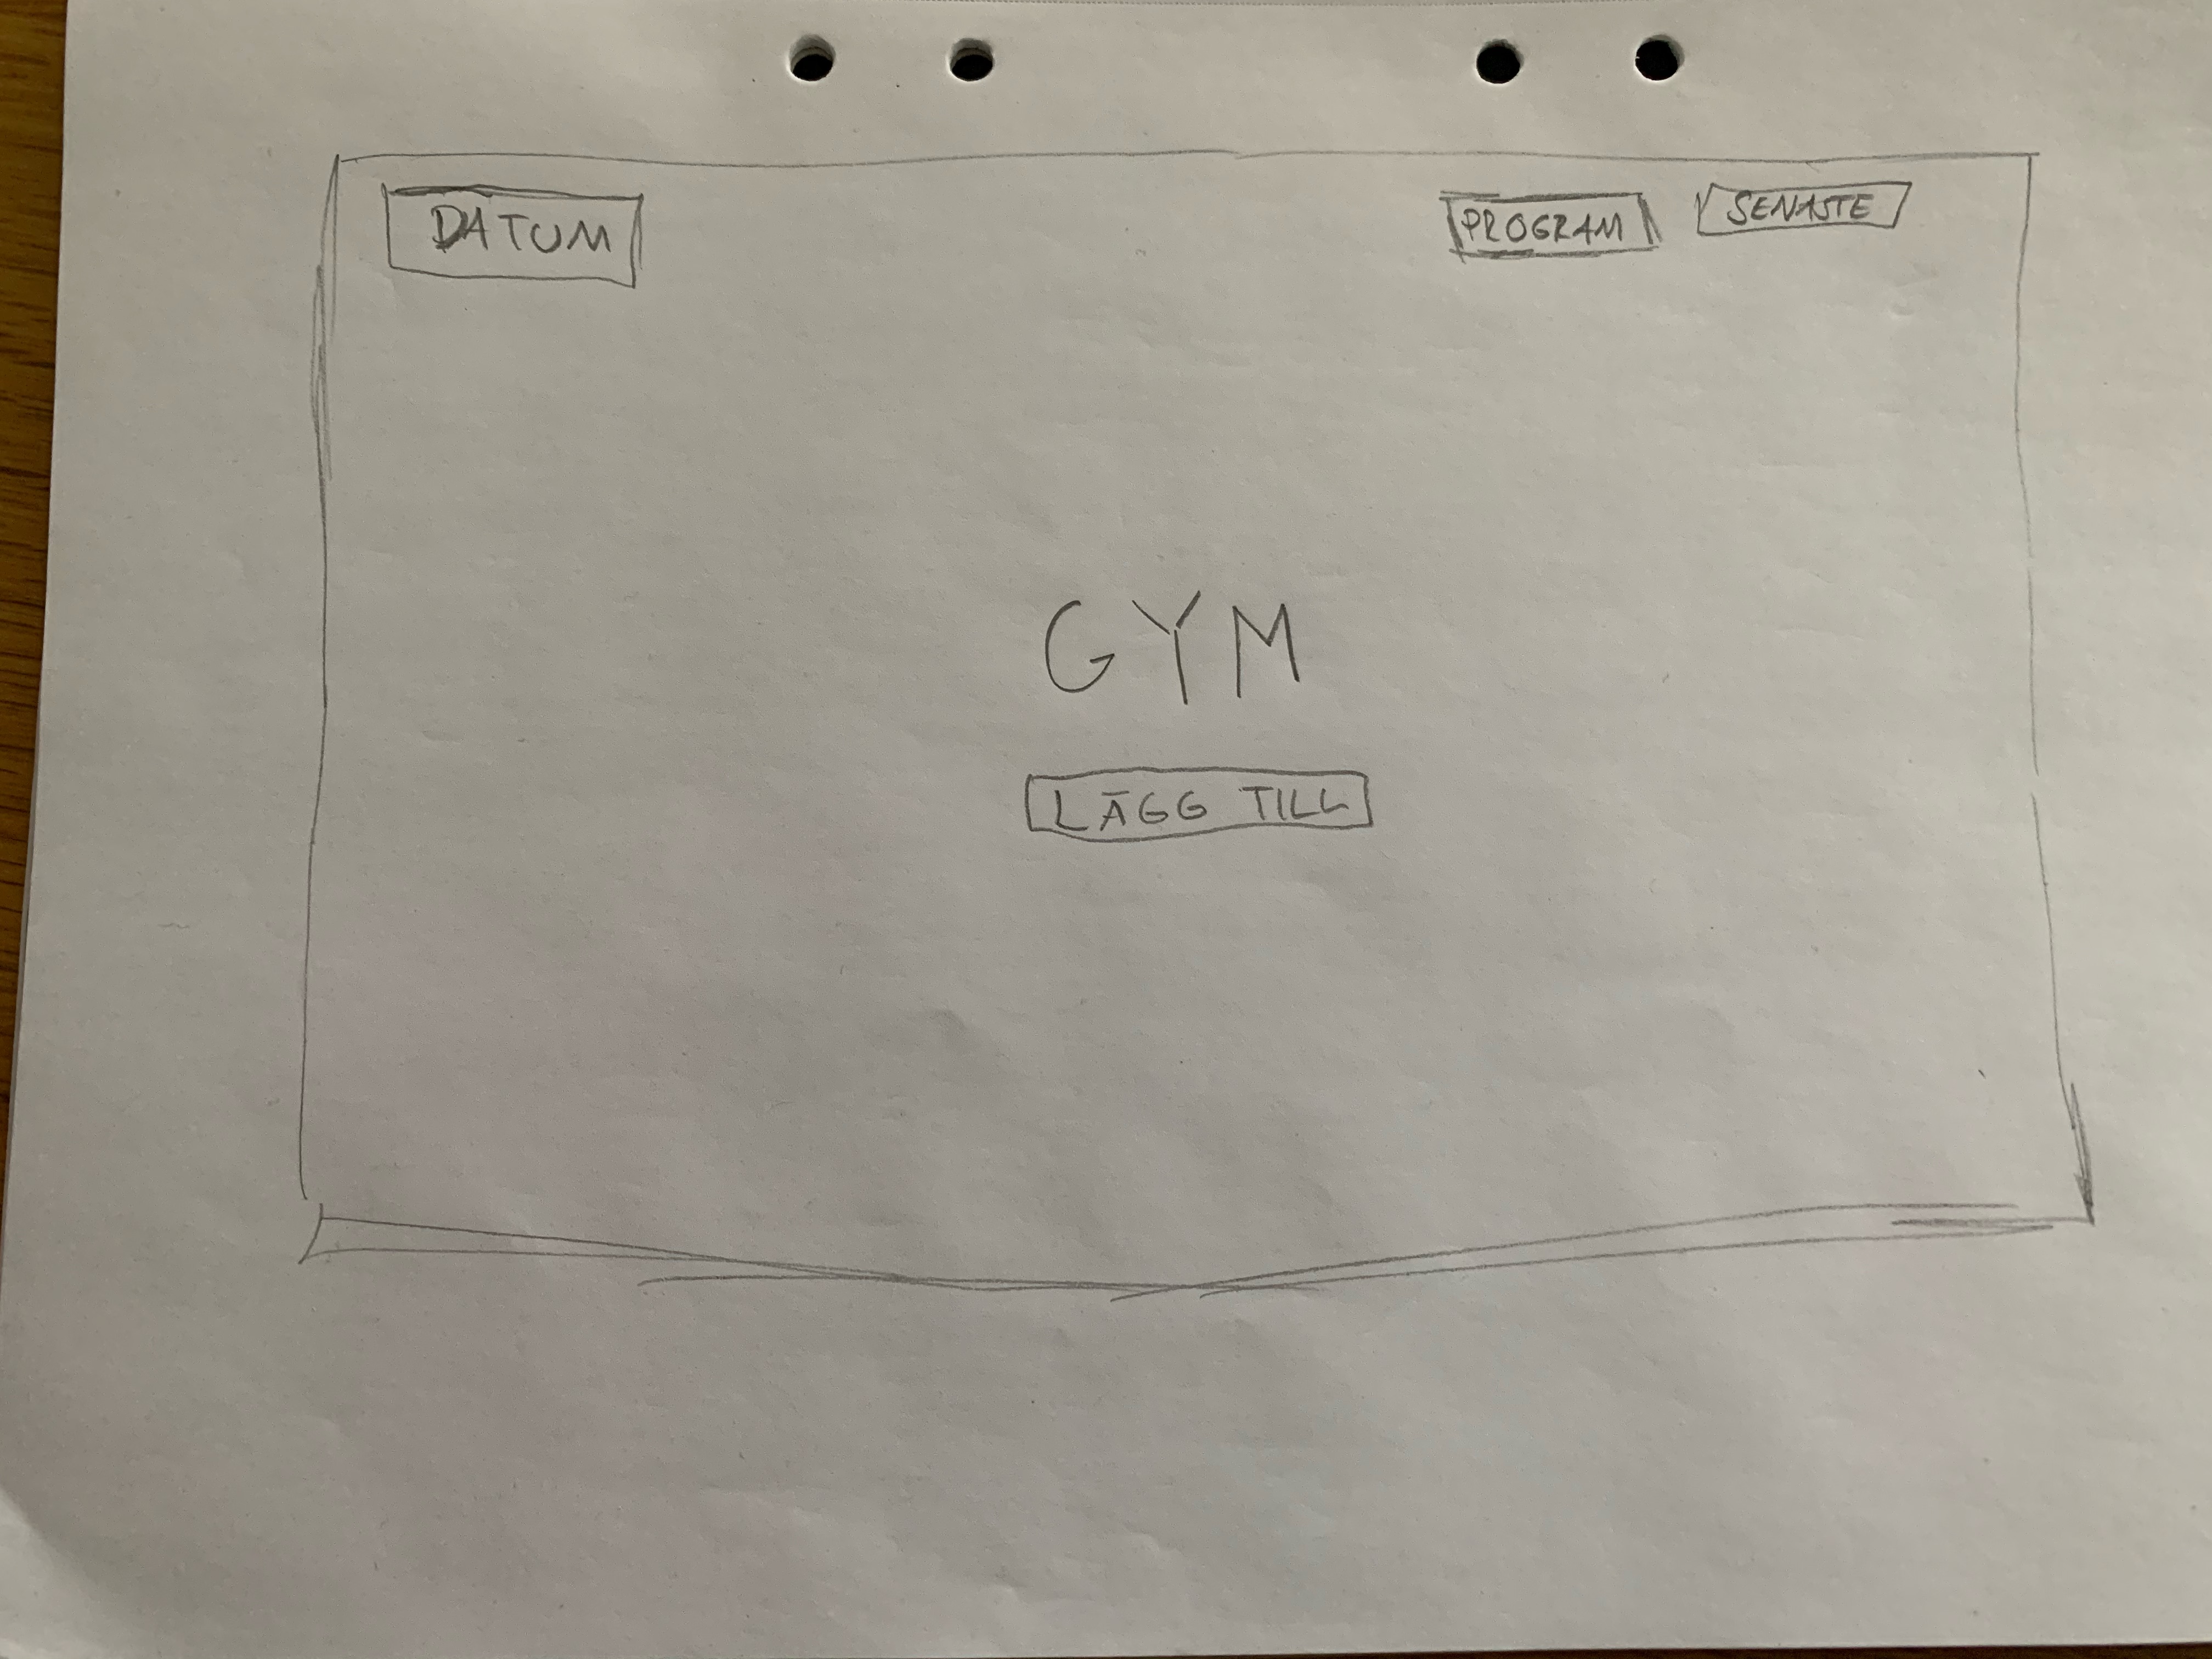 DATUM
PROGRAM
SENASTE
GYM
LÄGG TILL